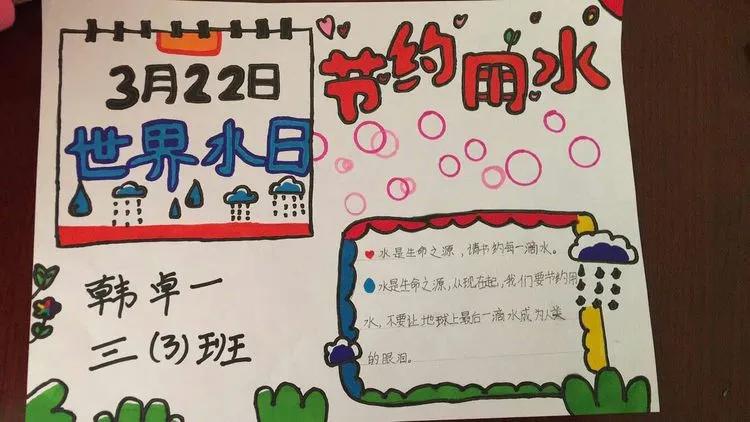 3月22日
世界水日
节约用水
水是生命之源，请节约每一滴水。
水是生命之源，从现在起，我们要节约用
水，不要让地球上最后一滴水成为人类
的眼泪。
韩卓一
三（3）班